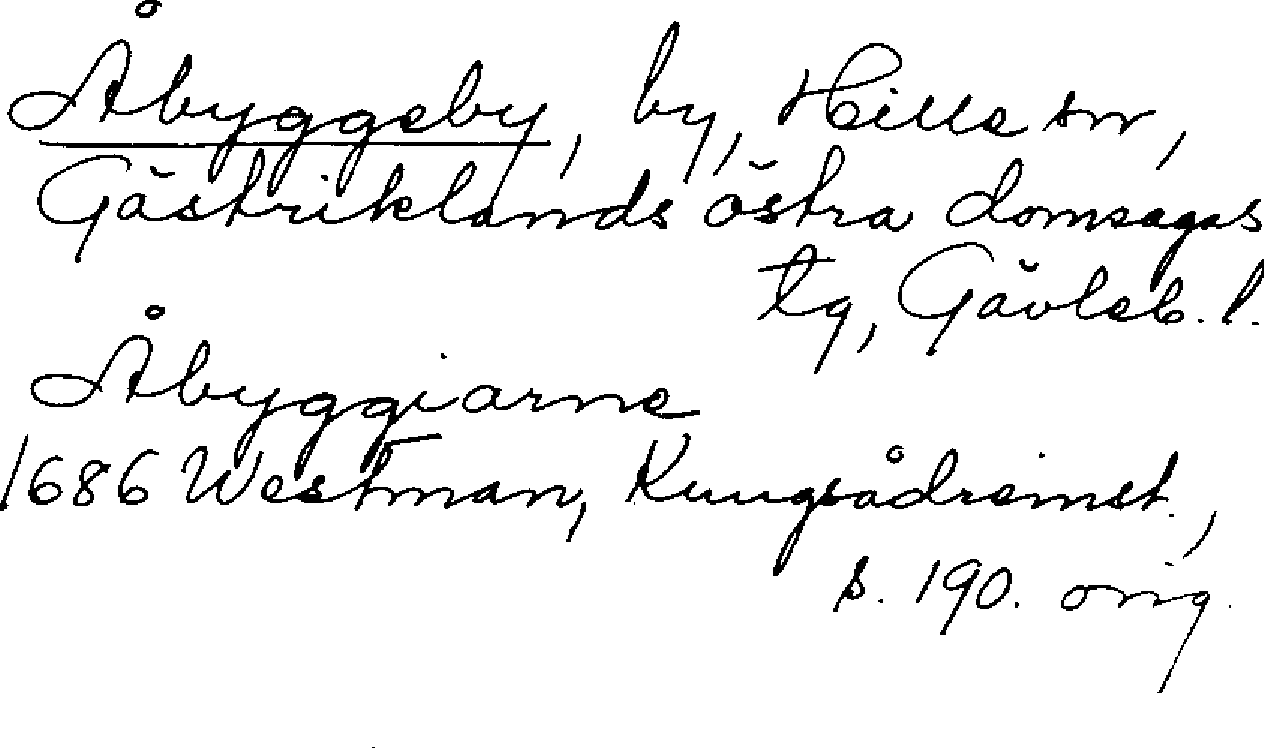 Åbyggeby, by, Hille sn,
Gästriklands östra domsagas
tg, Gävleb. l.
Åbyggiarne
1686 Westman, Kungsådreinst.,
s. 190. orig.